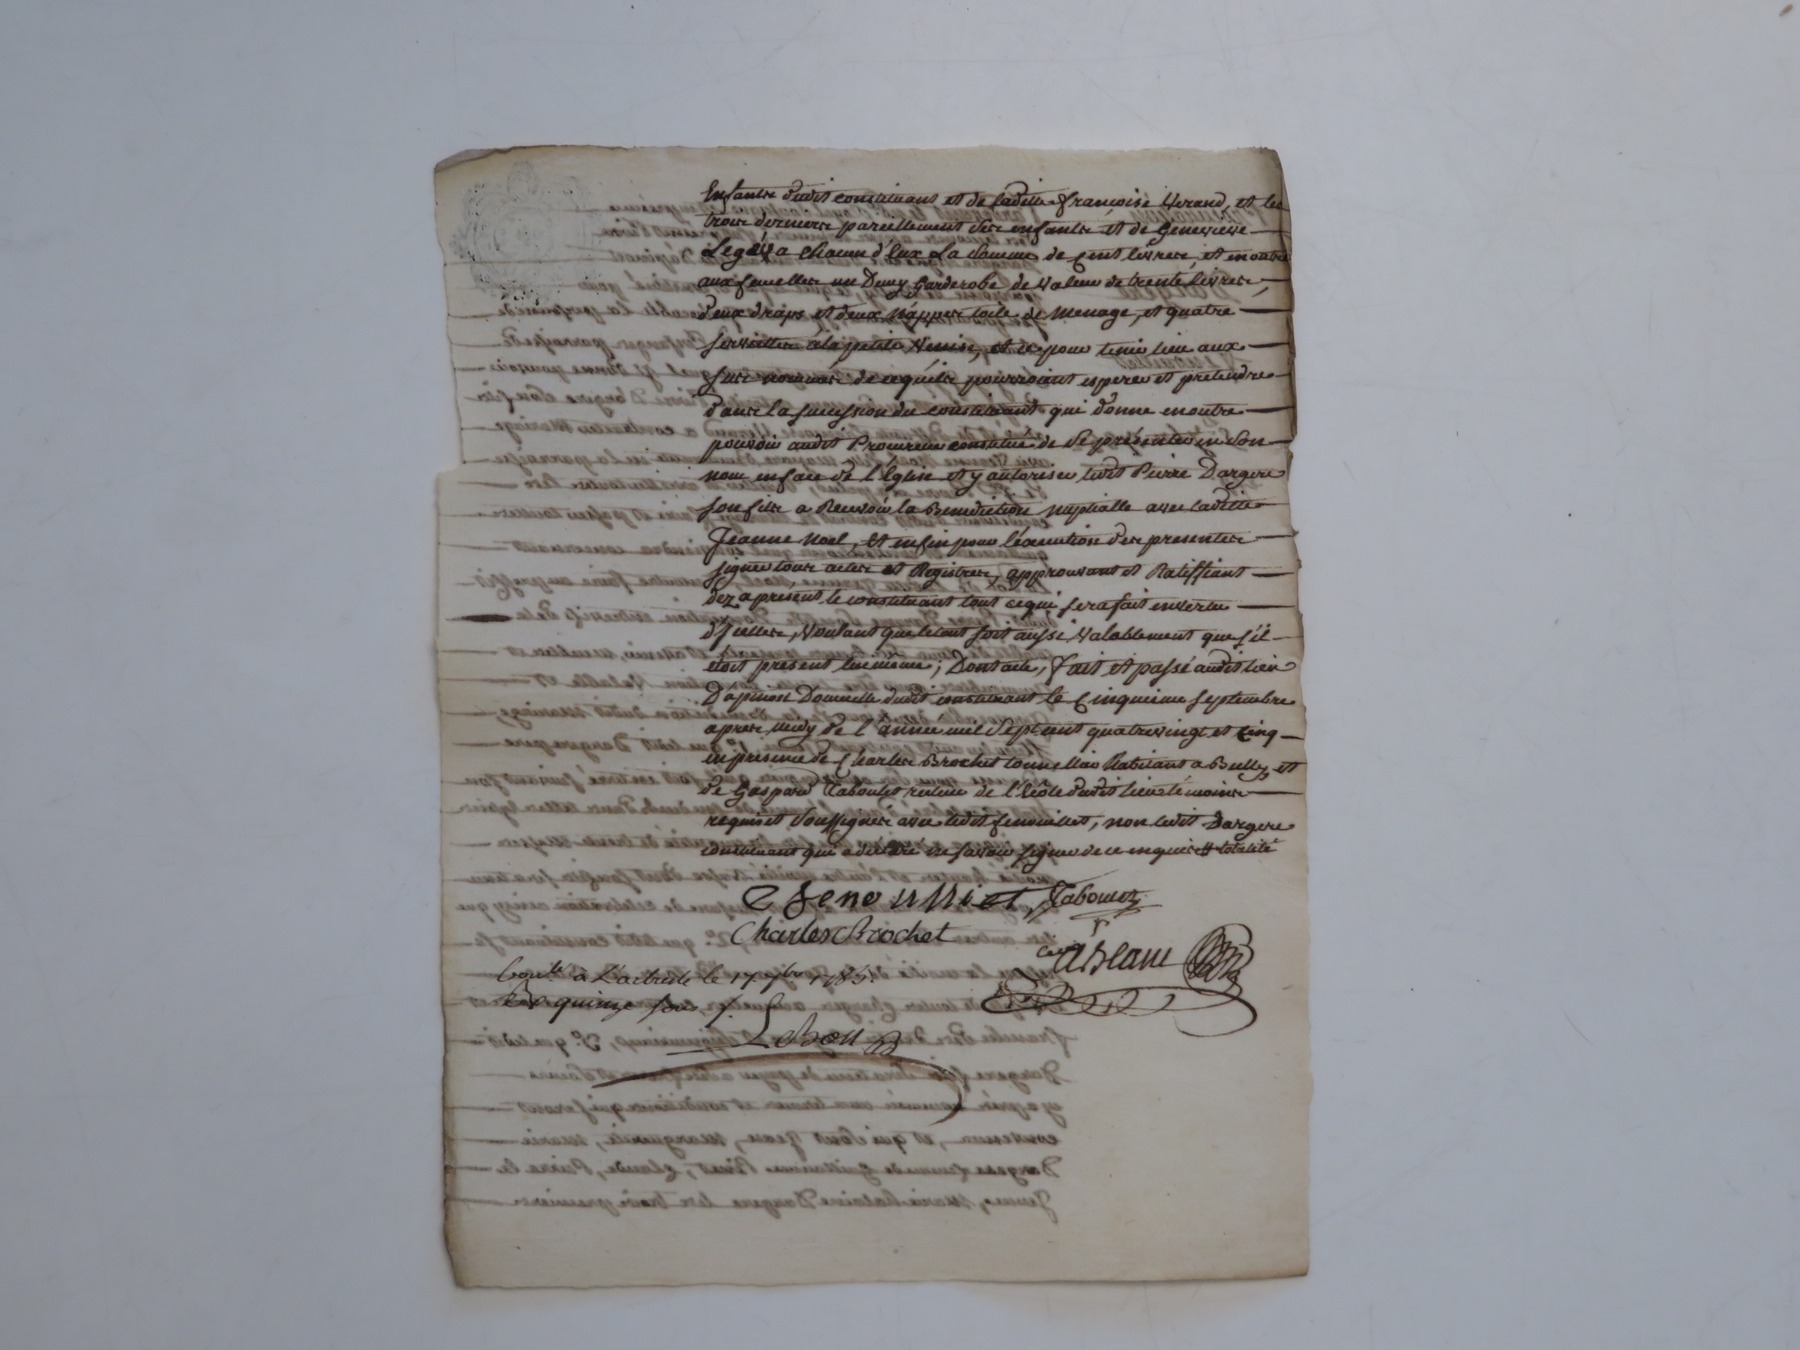 Enfants dudit constituant et de ladite françoise Verand, et les
trois derniers pareillement ses enfants et de Genevieve
Legay a chacun d'eux La Somme de Cent livres et en outre
aux femelles un Demy Garderobe de Valeur de trente livres,
deux draps et deux nappes toile de Menage, et quatre
serviettes à la petite Venise, et ce pour tenir lieu aux
sus nommés de ce qu'ils pourroient esperer et pretendre
dans la succession du constituant qui donne en outre
pouvoir audit Procureur constitué de Se présenter en Son
nom en face de l'Eglise et y autoriser ledit Pierre Dargere
son fils a Recevoir la Benediction nuptialle avec ladite
Jeanne Noel, Et enfin pour l'éxecution des presentes
signer tous actes et Registres, approuvant et Ratiffiant
dez apresent le constituant tout ce qui sera fait en vertu
d'Icelles, Voulant que le tout soit aussi Valablement que s'il
etoit present luy meme; Dont acte, fait et passé audit lieu
Dapinost Domicile dudit constituant le Cinquieme Septembre
apres Midy de l'année mil Sept cent quatrevingt et Cinq
en presence de Charles Brochet tonnellier habitant a Bully, et
de Gaspard Taboulet recteur de l'Ecole dudit lieu témoins
requis et Soussignés avec ledit fenouillet, non ledit Dargere
constituant qui a declaré ne savoir signer de ce enquis # totalité
fenouillet Taboulet
Charles Brochet
à L'arbrele le 17 7bre 1785.
quinze sous